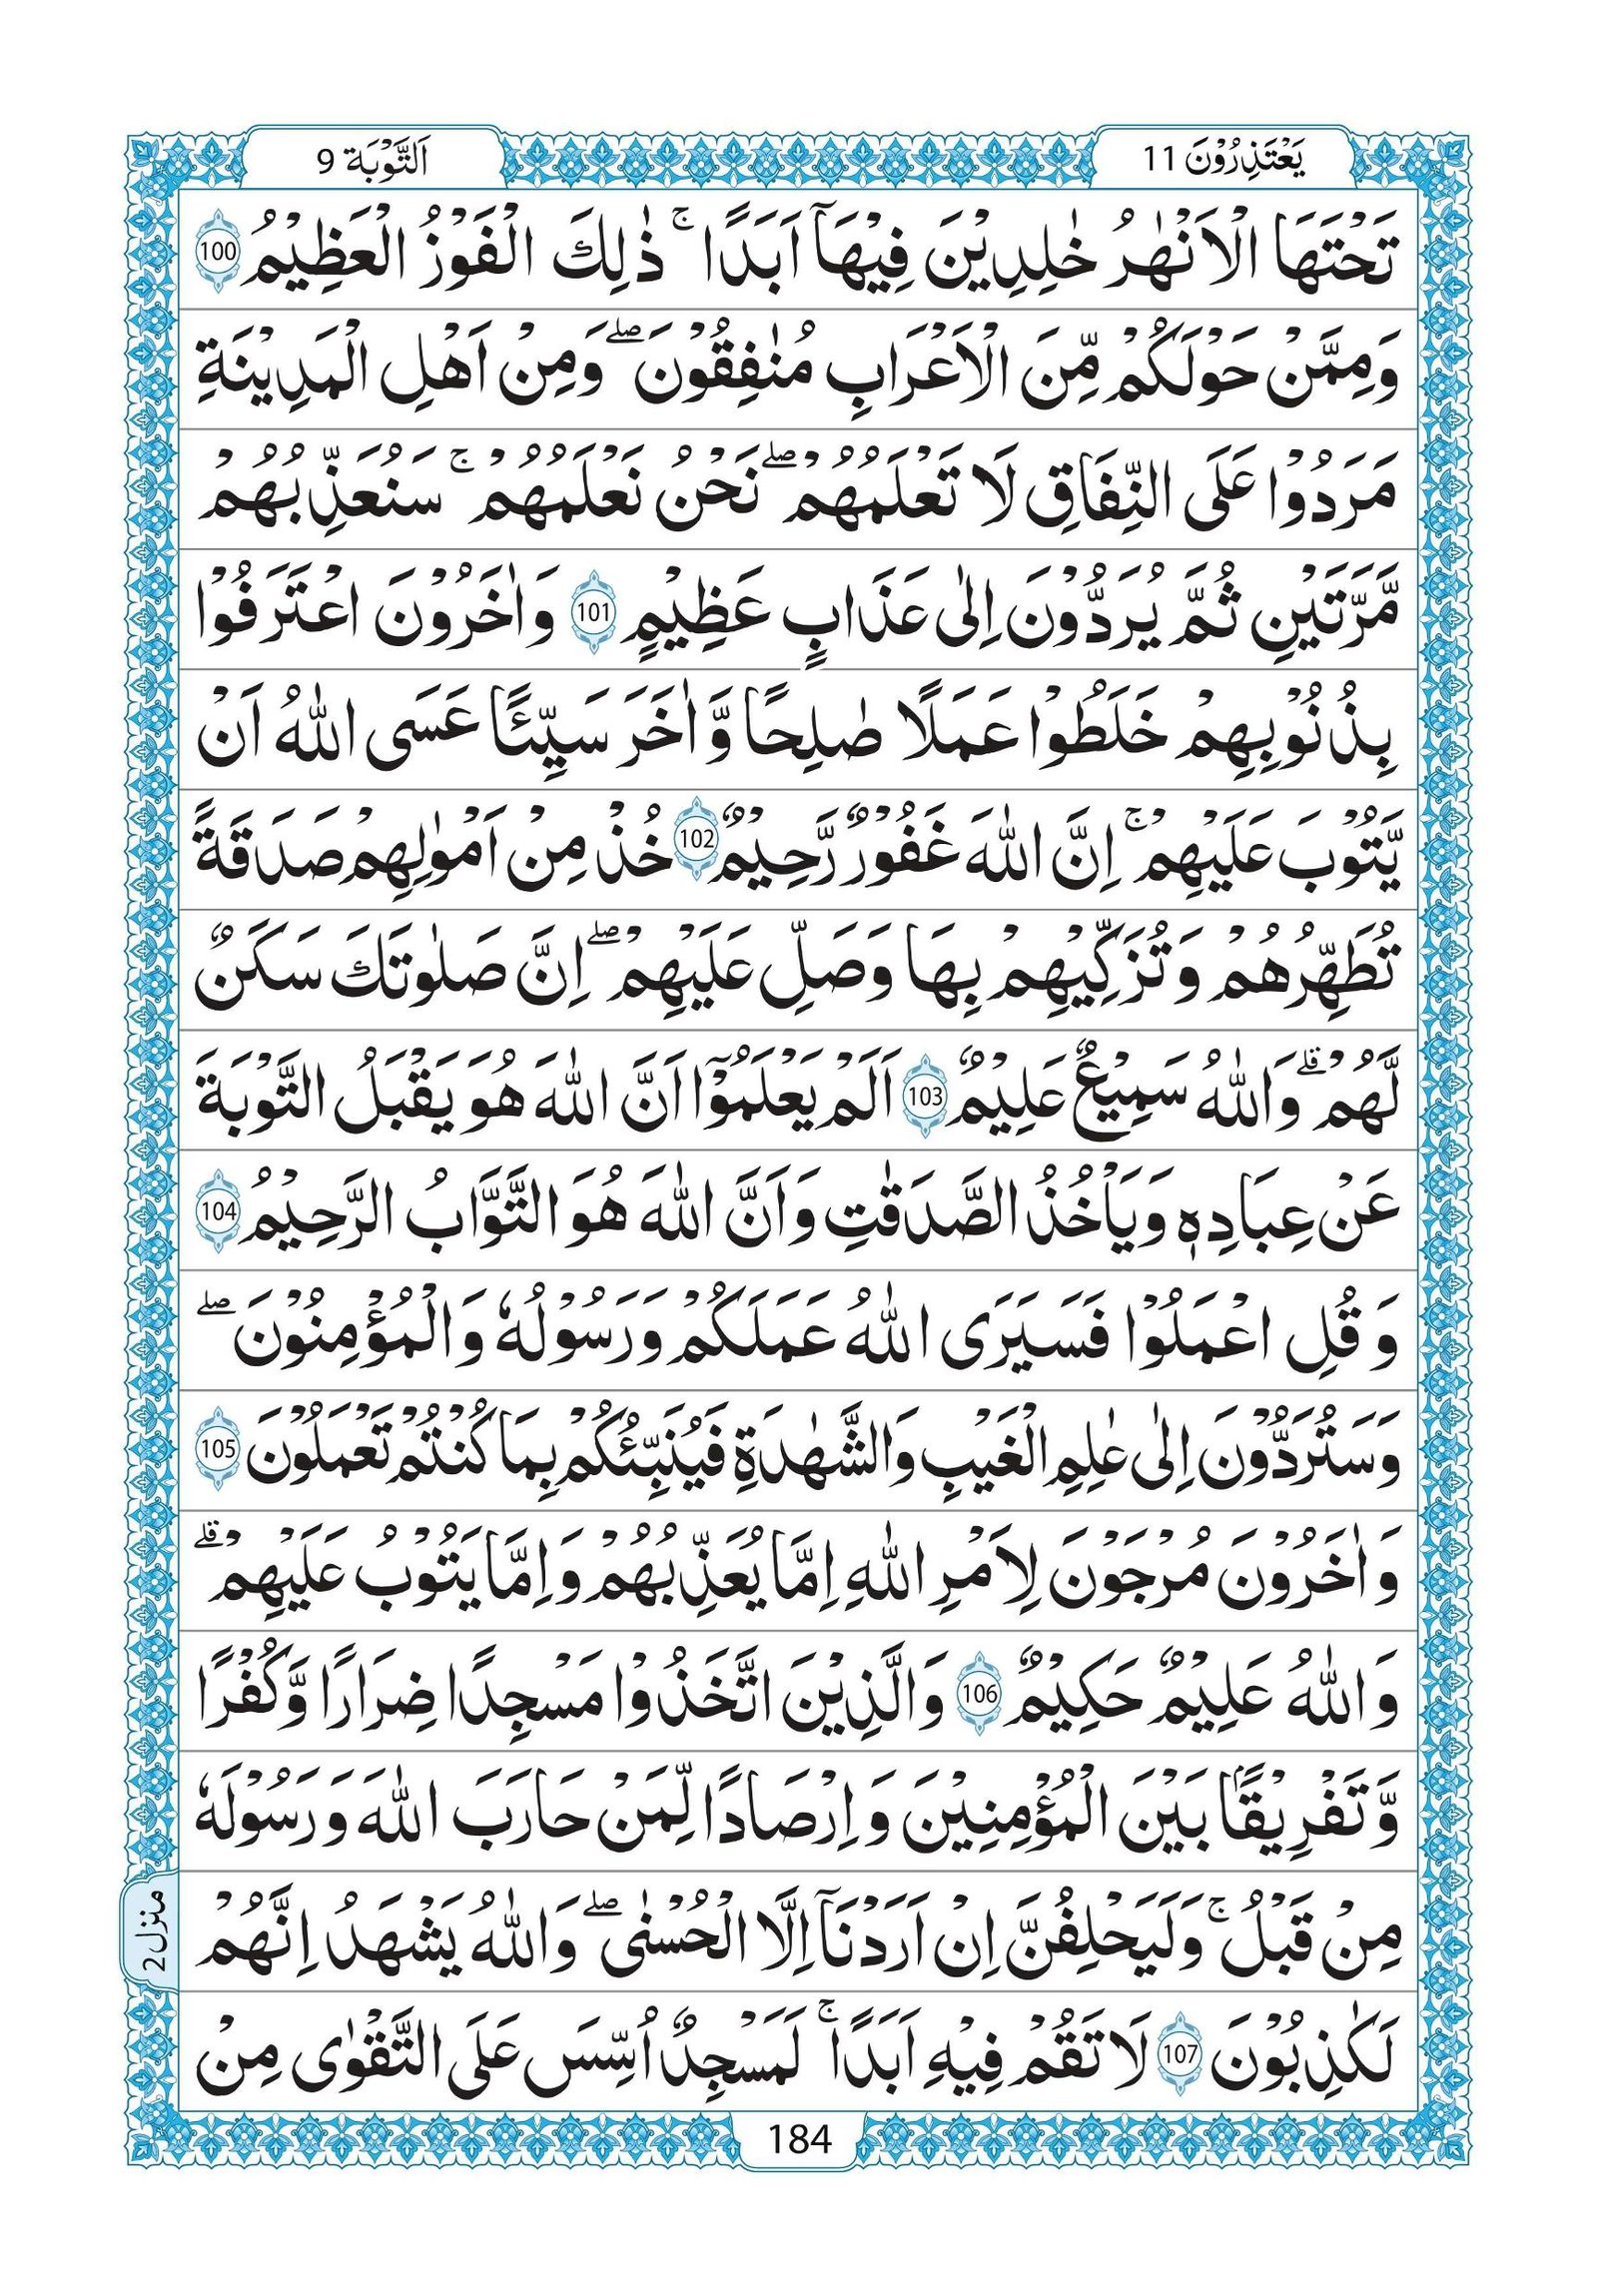 يَعْتَذِرُوْنَ 11
اَلتَّوْبَة 9
تَحْتَهَا الْاَنْهٰرُ خٰلِدِيْنَ فِيْهَاۤ اَبَدًا ۚ ذٰلِكَ الْفَوْزُ الْعَظِيْمُ 100
وَمِمَّنْ حَوْلَكُمْ مِّنَ الْاَعْرَابِ مُنٰفِقُوْنَ ۖ وَمِنْ اَهْلِ الْمَدِيْنَةِ
مَرَدُوْا عَلَى النِّفَاقِ لَا تَعْلَمُهُمْ ۖ نَحْنُ نَعْلَمُهُمْ ۚ سَنُعَذِّبُهُمْ
مَّرَّتَيْنِ ثُمَّ يُرَدُّوْنَ اِلٰى عَذَابٍ عَظِيْمٍ 101 وَاٰخَرُوْنَ اعْتَرَفُوْا
بِذُنُوْبِهِمْ خَلَطُوْا عَمَلًا صٰلِحًا وَّاٰخَرَ سَيِّئًا عَسَى اللّٰهُ اَنْ
يَّتُوْبَ عَلَيْهِمْ ۚ اِنَّ اللّٰهَ غَفُوْرٌ رَّحِيْمٌ 102 خُذْ مِنْ اَمْوٰلِهِمْ صَدَقَةً
تُطَهِّرُهُمْ وَتُزَكِّيْهِمْ بِهَا وَصَلِّ عَلَيْهِمْ ۖ اِنَّ صَلٰوتَكَ سَكَنٌ
لَّهُمْ ۗ وَاللّٰهُ سَمِيْعٌ عَلِيْمٌ 103 اَلَمْ يَعْلَمُوْۤا اَنَّ اللّٰهَ هُوَ يَقْبَلُ التَّوْبَةَ
عَنْ عِبَادِهٖ وَيَاْخُذُ الصَّدَقٰتِ وَاَنَّ اللّٰهَ هُوَ التَّوَّابُ الرَّحِيْمُ 104
وَقُلِ اعْمَلُوْا فَسَيَرَى اللّٰهُ عَمَلَكُمْ وَرَسُوْلُهٗ وَالْمُؤْمِنُوْنَ ۖ
وَسَتُرَدُّوْنَ اِلٰى عٰلِمِ الْغَيْبِ وَالشَّهٰدَةِ فَيُنَبِّئُكُمْ بِمَا كُنْتُمْ تَعْمَلُوْنَ 105
وَاٰخَرُوْنَ مُرْجَوْنَ لِاَمْرِ اللّٰهِ اِمَّا يُعَذِّبُهُمْ وَاِمَّا يَتُوْبُ عَلَيْهِمْ ۗ
وَاللّٰهُ عَلِيْمٌ حَكِيْمٌ 106 وَالَّذِيْنَ اتَّخَذُوْا مَسْجِدًا ضِرَارًا وَّكُفْرًا
وَّتَفْرِيْقًۢا بَيْنَ الْمُؤْمِنِيْنَ وَاِرْصَادًا لِّمَنْ حَارَبَ اللّٰهَ وَرَسُوْلَهٗ
مِنْ قَبْلُ ۚ وَلَيَحْلِفُنَّ اِنْ اَرَدْنَاۤ اِلَّا الْحُسْنٰى ۖ وَاللّٰهُ يَشْهَدُ اِنَّهُمْ
لَكٰذِبُوْنَ 107 لَا تَقُمْ فِيْهِ اَبَدًا ۚ لَمَسْجِدٌ اُسِّسَ عَلَى التَّقْوٰى مِنْ
منزل 2
184